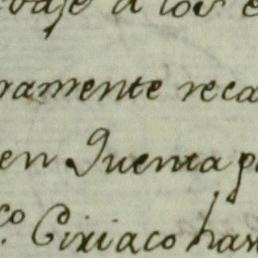 baje a los e
ramente reca
en Quenta p
co. Ciriaco han